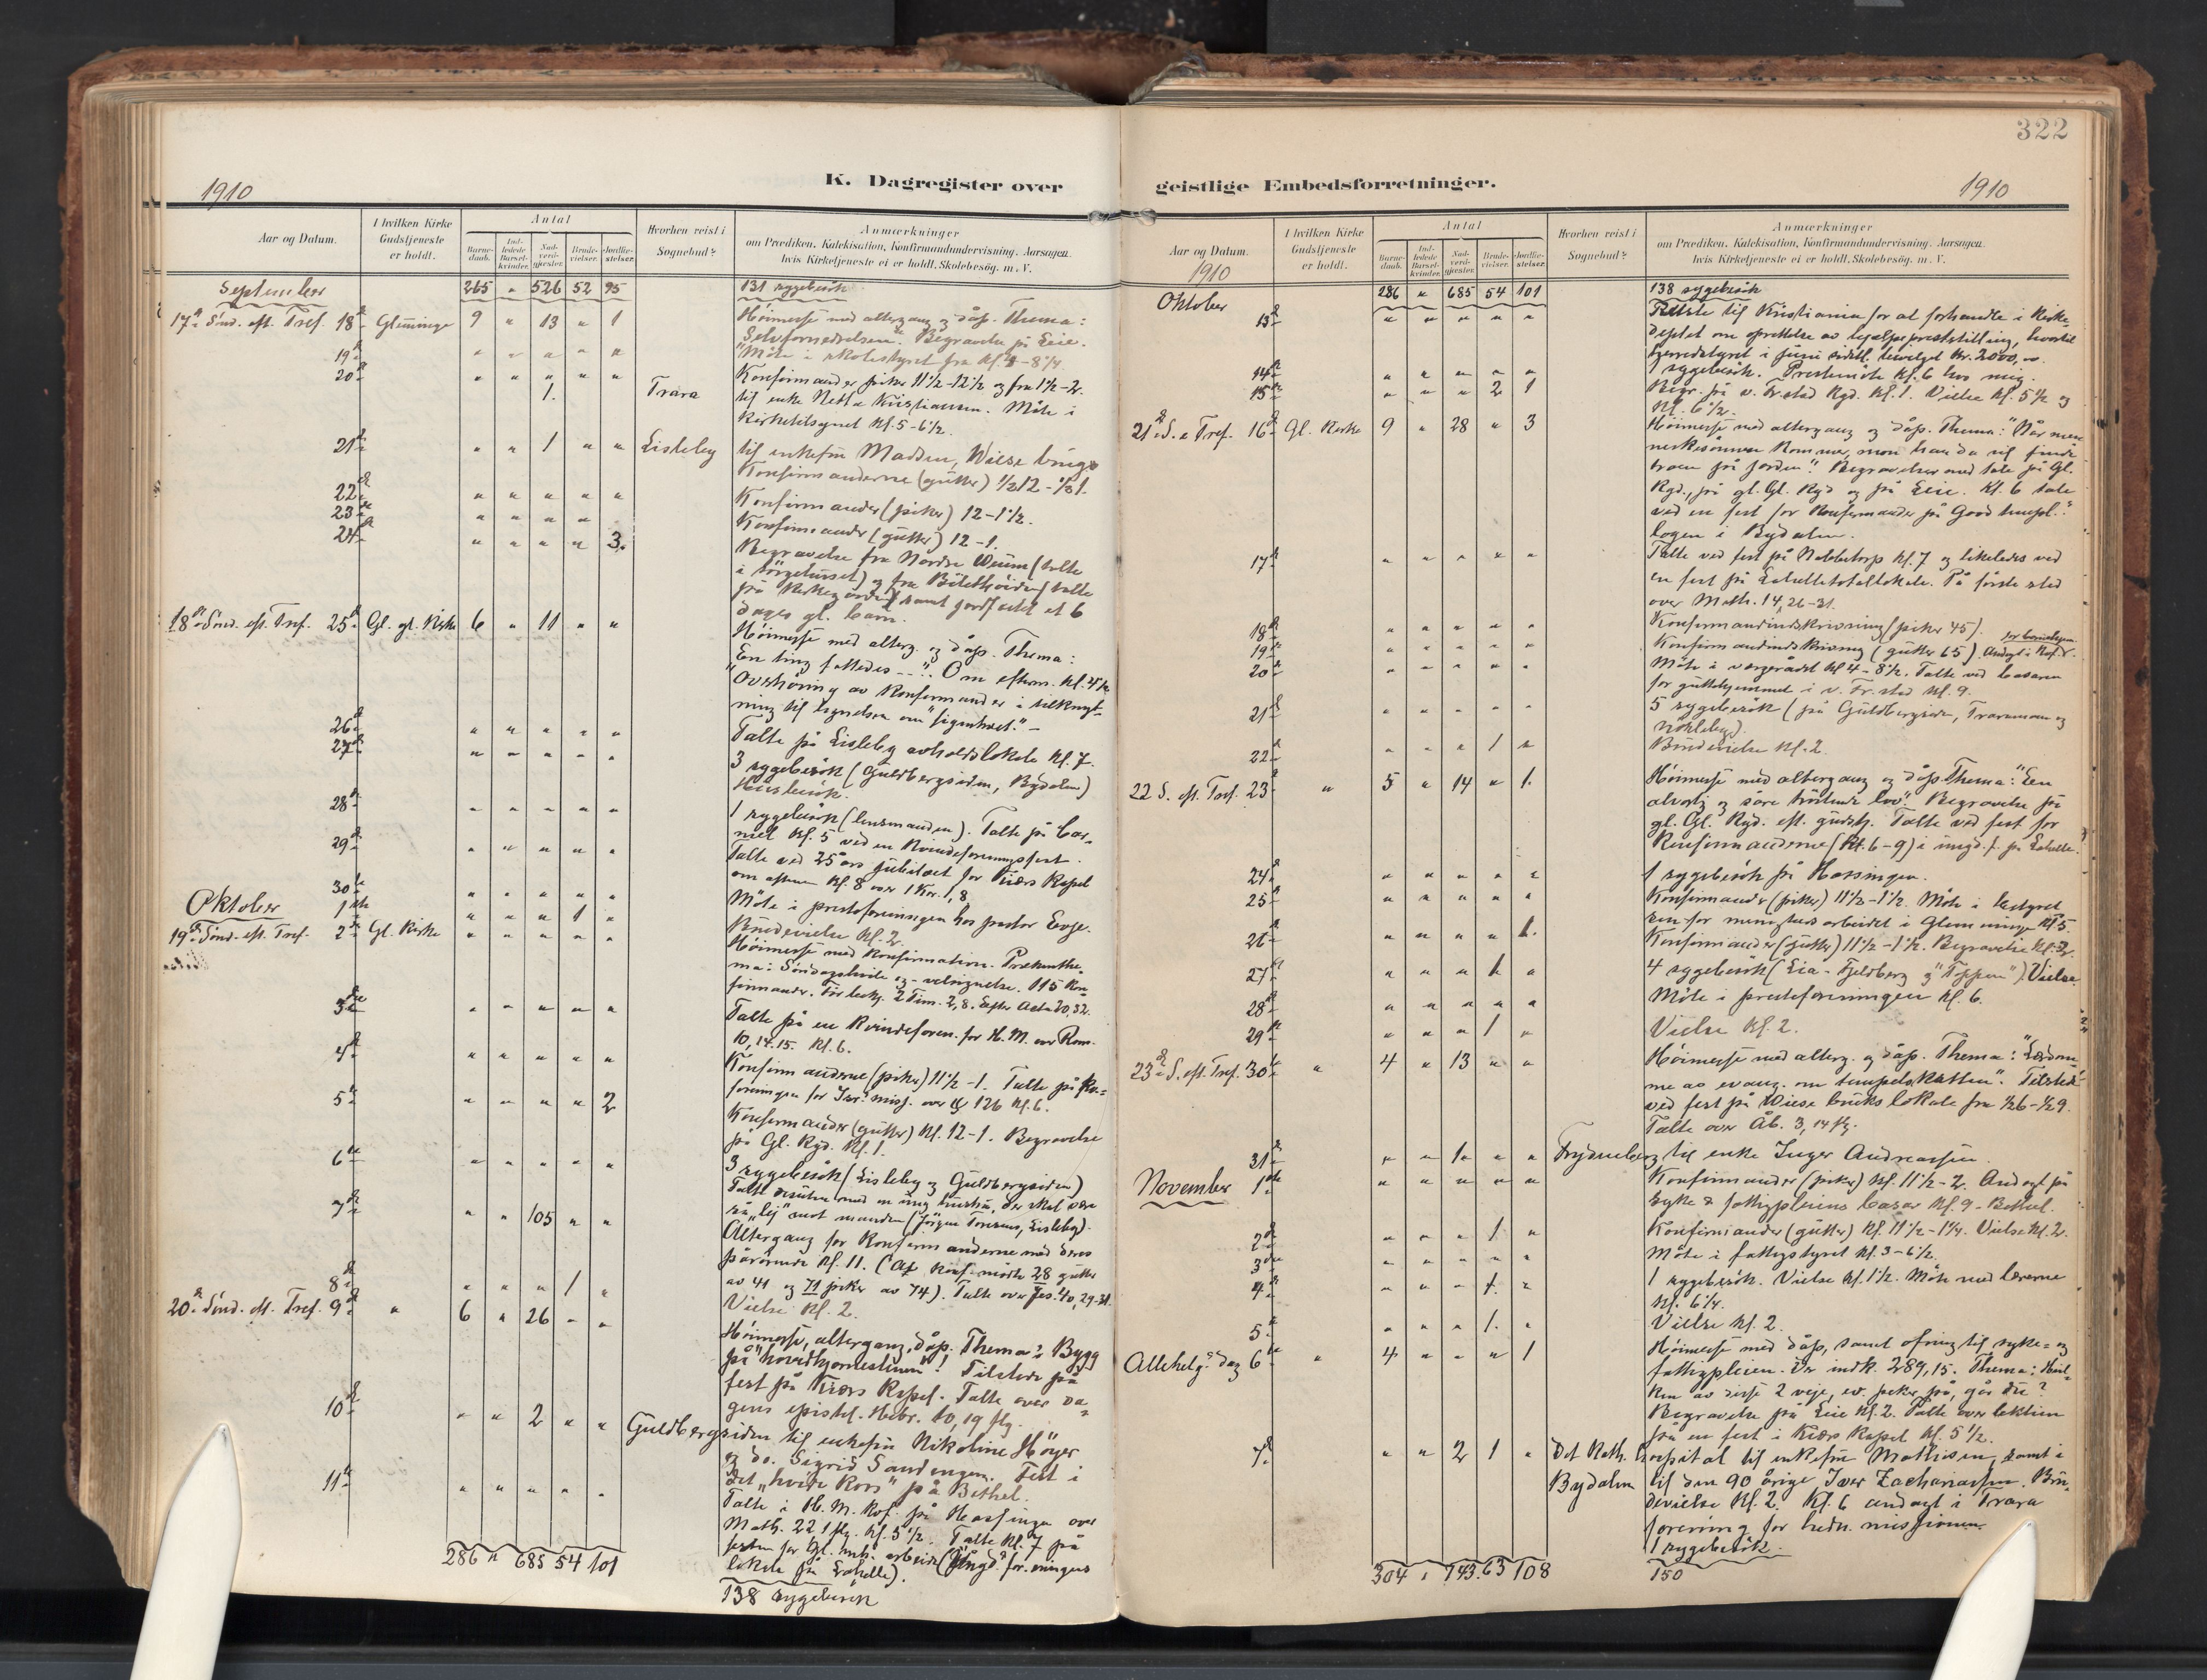 322
1910
K. Dagregister over
geistlige Embedsforretninger.
1910
Aar og Datum.
I hvilken Kirke Gudstjeneste er holdt.
Antal
Barnedaab.
Indledede Barselkvinder.
Nadverdgjester.
Brudevielser.
Jordfæstelser.
Hvorhen reist i Sognebud?
Anmærkninger
om Prædiken, Katekisation, Konfirmandundervisning, Aarsagen,
hvis Kirketjeneste ei er holdt, Skolebesøg, m. V.
September 265 " 526 52 95 131 sygebesök
17de Sönd. eft. Tref. 18de Glemminge 9 " 13 " 1 Höimesse med alterg. og dåp. Thema:
Selvfornedrelsen. Begravelse på Leie.
19de " " " " " Möte i skolestyret fra kl. 4-8 1/4
20de " " " " " Konfirmander piker 11 1/2-12 1/2 og fra 1 1/2-2.
1. Trara til enke Netta Kristiansen. Möte i
kirketilsynet kl. 5-6 1/2.
21de " " 1 " " Lisleby til enkefru Madsen, Wiese brug
Konfirmanderne (gutter) 1/2 12 - 1/2 1.
22de " " " " " Konfirmander (piker) 12-1 1/2.
23de " " " " Konfirmander (gutter) 12-1.
24de " " " " 3. Begravelse fra Nordre Weum (talte
i sörgehuset) og fra (talte
på kirkegården) samt jordfæstet et 6
dages gl. barn.
18de Sönd. eft. Tref. 25de Gl. gl. Kirke 6 " 11 " " Höimesse med alterg. og dåp. Thema:
"En ting fattedes --". Om efterm. kl. 4 1/2
Overhöring av Konfirmander i tilknyt-
ning til lignelsen om
26de " " " " " Talte på Lisleby avholdslokale kl. 7.
27de " " " " " 3 sygebesök (Guldbergsiden, Bydalen)
Husbesök.
28de " " " " " 1 sygebesök (lensmanden). Talte på Cor-
niel kl. 5 ved en Kvindeforeningsfest.
29de " " " " " Talte ved 25 års jubilæet for Kiærs Kapel
om aftenen kl. 8 over 1 Kor. 1,8
30te " " " " " Möte i presteforeningen hos pastor Evje.
Oktober 1ste " " " 1 " Brudevielse kl. 2.
19de Sönd. eft. Tref. 2den Gl. Kirke " " " " " Höimesse med konfirmation. Præken the-
ma: Söndagshvile og -velsignelse. 115 kon-
firmander. Förlæstg. 2 Tim. 2,8. Efter Acta 20,32.
3die " " " " " Talte på en Kvindeforen. for H. M. over Rom.
10, 14.15. kl. 6.
4de " " " " " Konfirmanderne (piker) 11 1/2-1. Talte på kv.=
foreningen for Isr. miss. over ψ 126 kl. 6.
5te " " " " 2 Konfirmander (gutter) kl. 12-1. Begravelse
på Gl. Kgd. kl. 1.
6te " " " " " 3 sygebesök (Lisleby og Guldbergsiden)
Talte
7de " " 105 " " Altergang for Konfirmanderne med deres
pårörende kl. 11. (Af Konf. mödte 28 gutter
av 41 og 71 piker av 74). Talte over Jes. 40, 29-31.
8de " " " 1 " Vielse kl. 2.
20de Sönd. eft. Tref. 9de " 6 " 26 " " Höimesse, altergang, dåp. Thema: Bygg
på "hovedhjörnestenen"! Tilstede på
fest på Kiærs Kapel. Talte over da-
gens epistel. Hebr. 10, 19 flg.
10de " " 2 " " Guldbergsiden til enkefru Nikoline Höyer
og do. Sigrid Sandengen. Fest i
det "hvite Kors" på Bethel.
11te " " " " " Talte i H. M. Kof. på Hassingen over
Math. 22 1 flg. kl. 5 1/2. Talte kl. 7 på
festen for Gl. arbeide (Ungd. foreningens
lokale på Labelle).
286 " 685 54 101 138 sygebesök
Aar og Datum.
1910
I hvilken Kirke Gudstjeneste er holdt.
Antal
Barnedaab.
Indledede Barselkvinder.
Nadverdgjester.
Brudevielser.
Jordfæstelser.
Hvorhen reist i Sognebud?
Anmærkninger
om Prædiken, Katekisation, Konfirmandundervisning, Aarsagen,
hvis Kirketjeneste ei er holdt, Skolebesøg, m. V.
Oktober 286 " 685 54 101 138 sygebesök
13de " " " " " Reiste til Kristiania for at forhandle i Kirke-
deptet om oprettelse av hjælpepreststilling, hvortil
herredstyret i juni sidstl. bevilget kr. 2000,00.
14de " " " " " 1 sygebesök. Prestemöte kl. 6 hos mig.
15de " " " 2 1 Begr. på v. Fr.stad Kgd. kl. 1. Vielse kl. 5 1/2 og
kl. 6 1/2.
21de S. e. Tref. 16de Gl. Kirke 9 " 28 " 3 Höimesse med altergang og dåp. Thema: "Når men-
neskesönnen kommer, mon han da vil finde
troen på jorden". Begravelser med tale på Gl.
Kgd., på gl. Gl. Kgd og på Leie. Kl. 6 tale
ved en fest for Konfirmander på Good templ.
logen i Bydalen.
17de " " " " " Talte ved fest på Nabbetorp kl. 7 og likeledes ved
en fest på Labelle totallokale. På förste sted
over Math. 14, 26-31.
18de " " " " " Konfirmandindskrivning (piker 45).
19de " " " " " Konfirmandindskrivning (gutter 65).
20de " " " " " Möte i vergerådet kl 4-8 1/2. Talte ved basaren
for guttehjemmet i v. Fr.stad kl. 9.
21de " " " " " 5 sygebesök (på Guldbergsiden, Traramoen og
Nökleby).
22de " " " 1 " Brudevielse kl. 2.
22 S. eft. Tref. 23de " 5 " 14 " 1. Höimesse med altergang og dåp. Thema: "En
alvorlig og såre tröstende lov". Begravelse på
gl. Gl. Kgd. eft. gudstj. Talte ved fest for
Konfirmanderne (kl. 6-9) i ungd. f. på Labelle.
24de " " " " " 1 sygebesök på Hassingen.
25de " " " " " Konfirmander (piker) 11 1/2-1 1/2. Möte i bestyrel
sen for menighedsarbeidet i Glemminge kl. 5.
26de " " " " 1. Konfirmander (gutter) 11 1/2-1 1/2. Begravelse kl. 2.
27de " " " 1. " 4 sygebesök (Lia-Fjeldberg og "Toppen"). Vielse.
28de " " " " " Möte i presteforeningen kl. 6.
29de " " " 1 " Vielse kl. 2.
23de S. eft. Tref. 30te " 4 " 13 " " Höimesse med alterg. og dåp. Thema: "Lærdom-
me av evang. om tempelskatten". Tilstede
ved fest på Wiese bruks lokale fra 1/2 6-1/2 9.
Talte over Åb. 3, 14 flg.
31te " " 1. " " Frydenberg til enke Inger Andreassen.
November 1ste " " " " " Konfirmander (piker) kl. 11 1/2-2. Andagt på
syke & fattigpleiens basar kl. 9. Bethel.
2den " " " 1 " Konfirmander (gutter) kl. 11 1/2-1 1/4. Vielse kl. 2.
3die " " " " " Möte i fattigstyret kl. 3-6 1/2.
4de " " " 1. " 1 sygebesök. Vielse kl. 1 1/2. Möte med lærerne
kl. 6 1/4.
5te " " " 1. " Vielse kl. 2.
Allehelg. dag 6te " 4 " " " 1 Höimesse med dåp, samt ofring til syke- og
fattigpleien. Der indk. 289,15. Thema: Hvil-
ken av disse 2 veje, ev. peker på, går du?
Begravelse på Leie kl. 2. Talte over lektien
på en fest i Kiærs Kapel kl. 5 1/2.
7de " " 2 1 " Det Kath. hospital til enkefru Mathisen, samt i
Bydalen til den 90 årige Iver Zachariassen. Bru-
devielse kl. 2. Kl. 6 andagt i Trara
forening for hedn. missionen.
1 sygebesök.
304 " 743 63 108 150